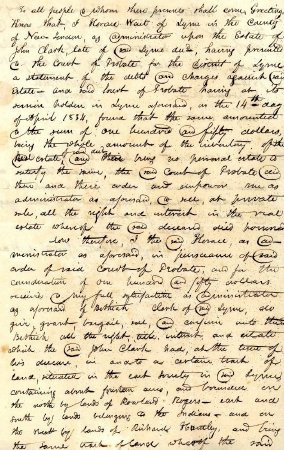 To all people to whom these presents shall come, Greeting
Know that I Horace Wait of Lyme in the County
of New London, as administrator upon the Estate of
John Clark, late of said Lyme dec'd, having presented
to the Court of Probate for the District of Lyme,
a statement of the debts and charges against said
Estate - and said Court of Probate having at its
session holden in Lyme aforesaid, on the 14th day
of April 1834, found that the same, amounted
to the sum of one hundred and fifty dollars,
being the whole amount of the inventory of the
real estate of said dec'd and there being no personal estate to
satisfy the same, the said Court of Probate did
then and there order and empower me as
administrator as aforesaid, to sell, at private
sale, all the right and interest in the real
estate whereof the said deceased died possessed
Now therefore, I the said Horace, as ad-
ministrator as aforesaid, in pursuance of said
order of said Court of Probate, and for the
consideration of one hundred and fifty dollars
received to my full satisfaction as administrator
as aforesaid of Clark of said Lyme, do
give, grant, bargain, sell, and confirm unto the
all the right, title, interest, and estate
which the said John Clark had, at the time of
his decease, in and to a certain tract of
land, situated in the east Society in said Lyme,
containing about fourteen acres, and bounded on
the north by lands of Rowland Rogers - east and
south by lands belonging to the Indians - and on
the west by lands of Richard - and being
the same tract of land whereof the said